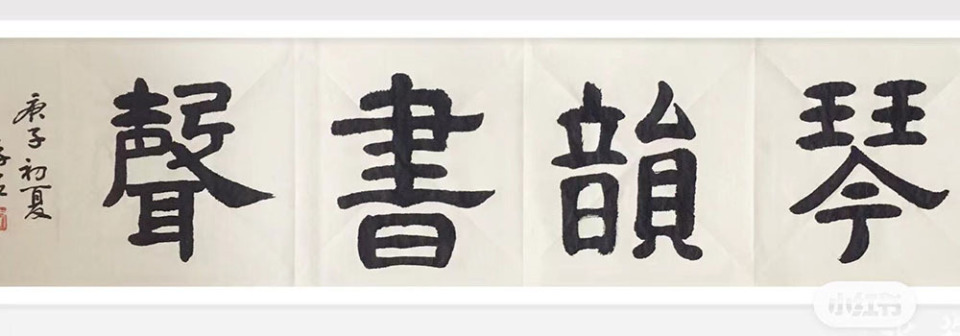 琴韻書聲
庚子初夏
小红书